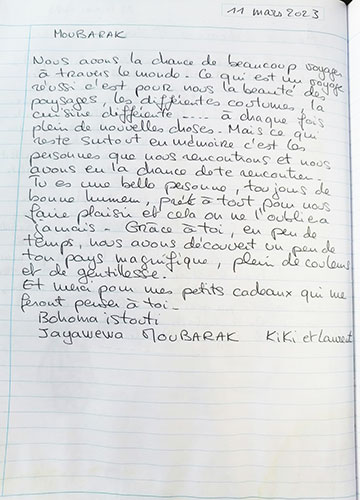 11 mars 2023
MOUBARAK
Nous avons la chance de beaucoup voyager
à travers le monde. Ce qui est un voyage
réussi c'est pour nous la beauté des
paysages, les différentes coutumes, la
cuisine différente .... à chaque fois
plein de nouvelles choses. Mais ce qui
reste surtout en mémoire c'est les
personnes que nous rencontrons et nous
avons eu la chance de te rencontrer.
Tu es une belle personne, toujours de
bonne humeur, prêt à tout pour nous
faire plaisir et cela on ne l'oubliera
jamais. Grâce à toi, en peu de
temps, nous avons découvert un peu de
ton pays magnifique, plein de couleurs
et de gentillesse.
Et merci pour mes petits cadeaux qui me
feront penser à toi.
Bohoma istouti
Jayawewa MOUBARAK KiKi et Laurent